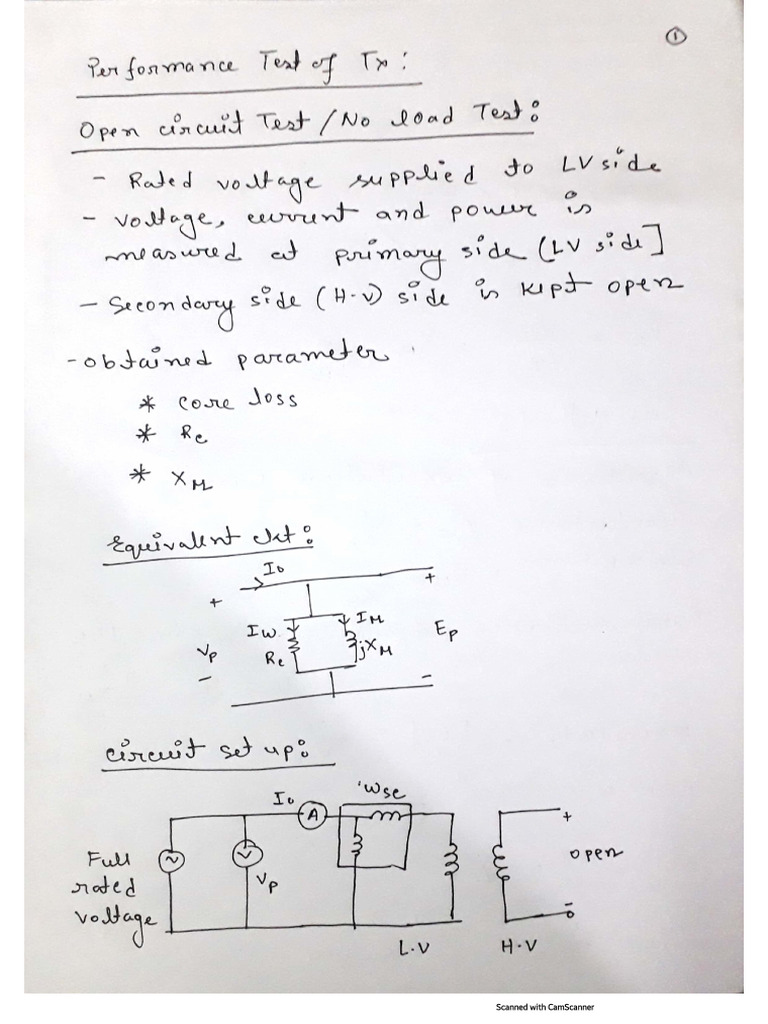 1
Performance Test of Tx:
Open circuit Test / No load Test:
- Rated voltage supplied to LV side
- voltage, current and power is
measured at primary side (LV side]
- Secondary side (H.V) side is kept open
- obtained parameter
* core loss
* Rc
* XM
Equivalent ckt:
I0
+ +
Iw IM
Vp Rc jXM Ep
- -
circuit set up:
I0 A Wse
+
Full ~ V open
rated Vp
voltage -
L.V H.V
Scanned with CamScanner